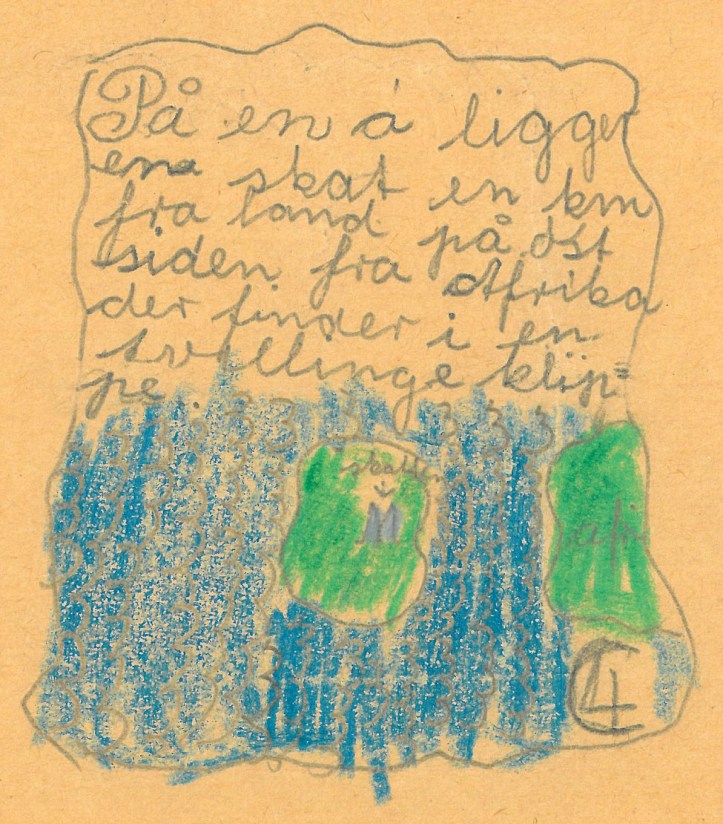 På en å ligger
en skat en km
fra land på øst
siden fra Afrika
der finder i en
tvillinge klip=
pe.
skatten
afri
4